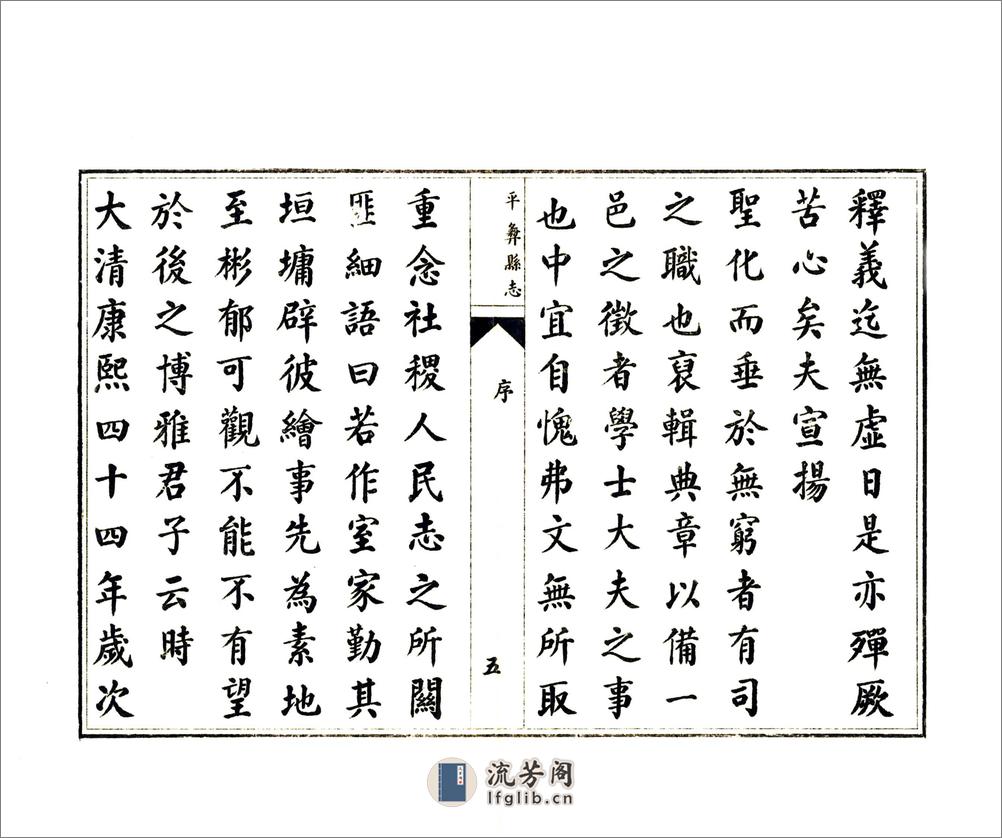 釋義迄無虛日是亦殫厥
苦心矣夫宣揚
聖化而垂於無窮者有司
之職也裒輯典章以備一
邑之徵者學士大夫之事
也中宜自愧弗文無所取
平彝縣志
序
五
重念社稷人民志之所關
匪細語曰若作室家勤其
垣墉辟彼繪事先為素地
至彬郁可觀不能不有望
於後之博雅君子云時
大清康熙四十四年歲次
流芳阁
lfglib.cn